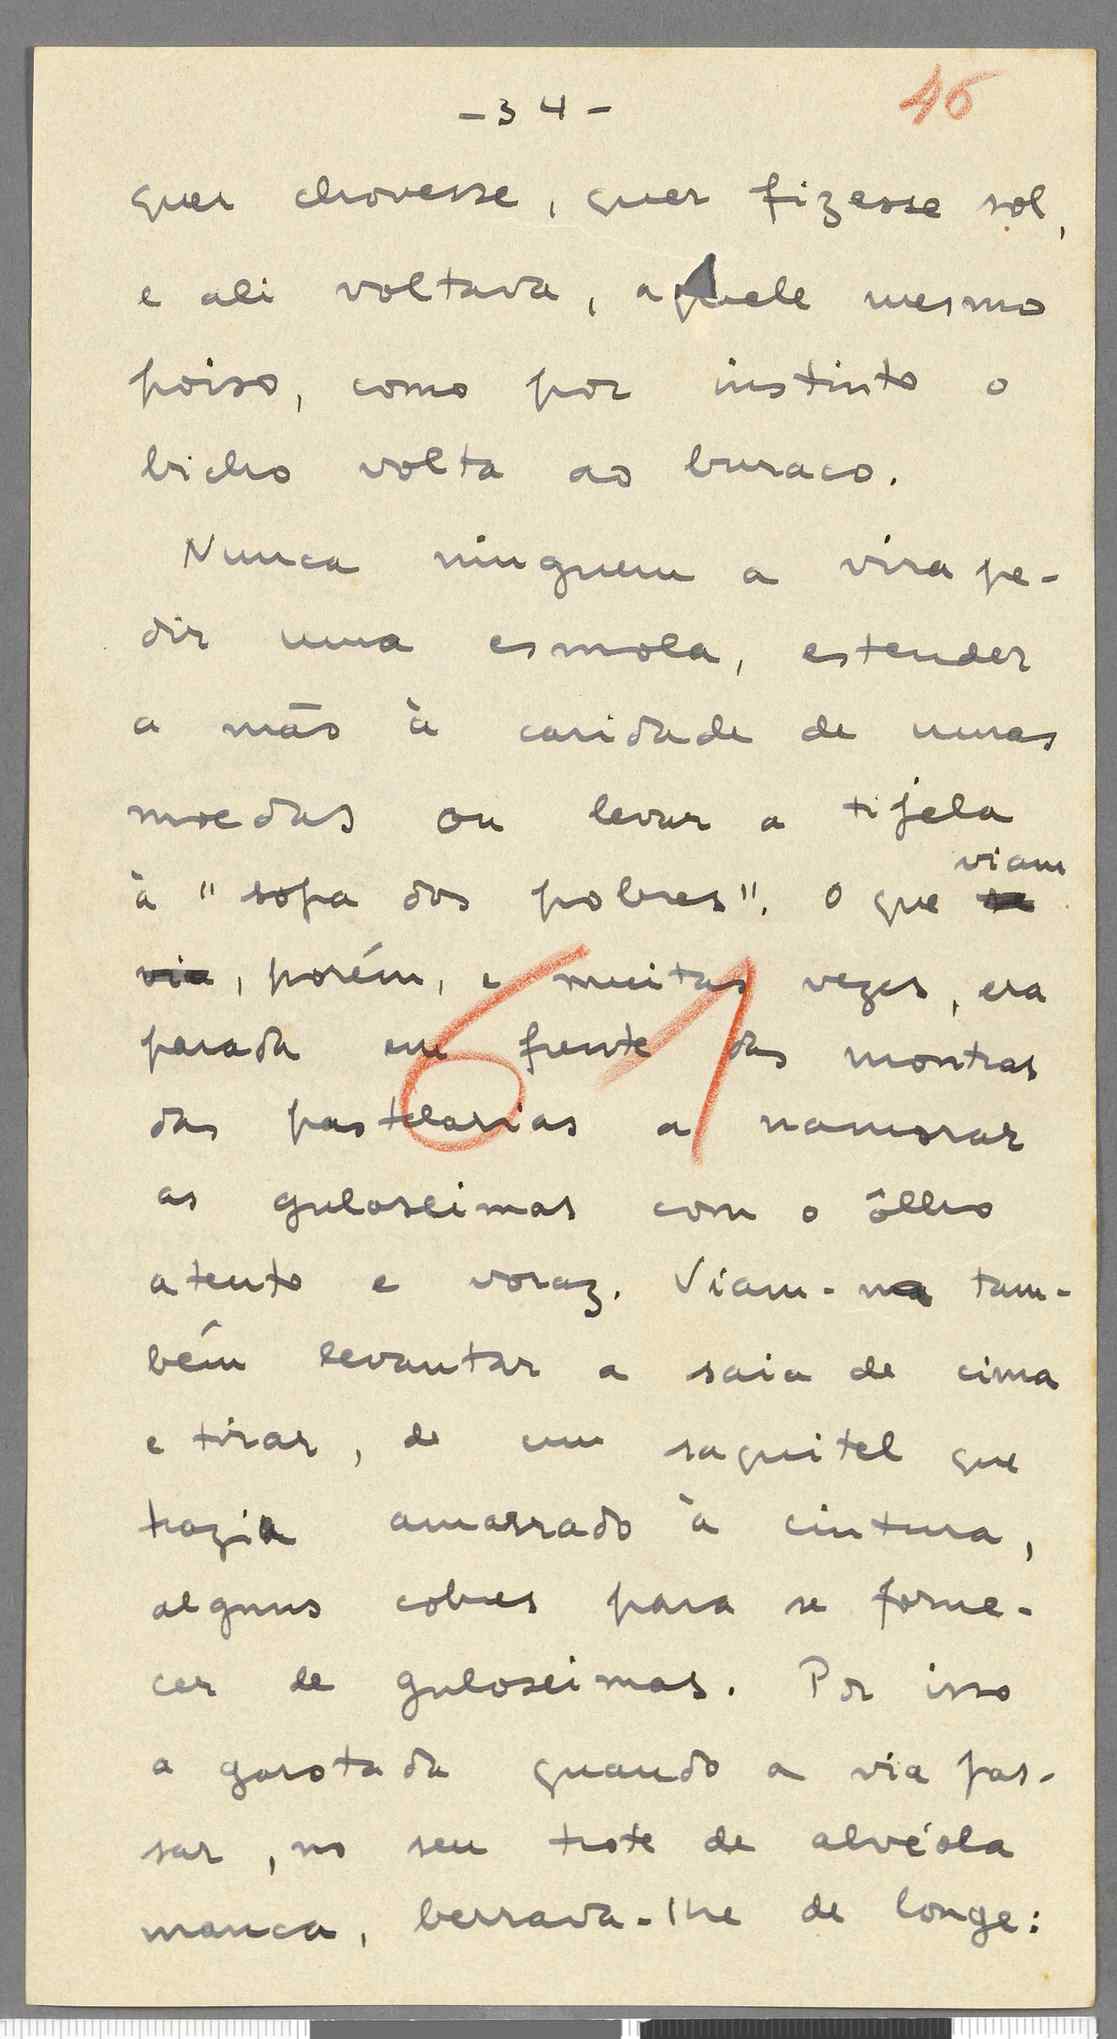 - 34 -
46
quer chovesse, quer fizesse sol,
e ali voltava, aquele mesmo
poiso, como por instinto o
bicho volta ao buraco.
Nunca ninguem a vira pe-
dir uma esmola, estender
a mão à caridade de umas
moedas ou levar a tijela
viam
à "sopa dos pobres". O que se
via, porém, e muitas vezes, era
61
parada em frente das montras
das pastelarias a namorar
as guloseimas com o ôlho
atento e voraz. Viam-na tam-
bém levantar a saia de cima
e tirar, de um saquitel que
trazia amarrado à cintura,
alguns cobres para se forne-
cer de guloseimas. Por isso
a garotada quando a via pas-
sar, no seu trote de alvéola
manca, berrava-lhe de longe: